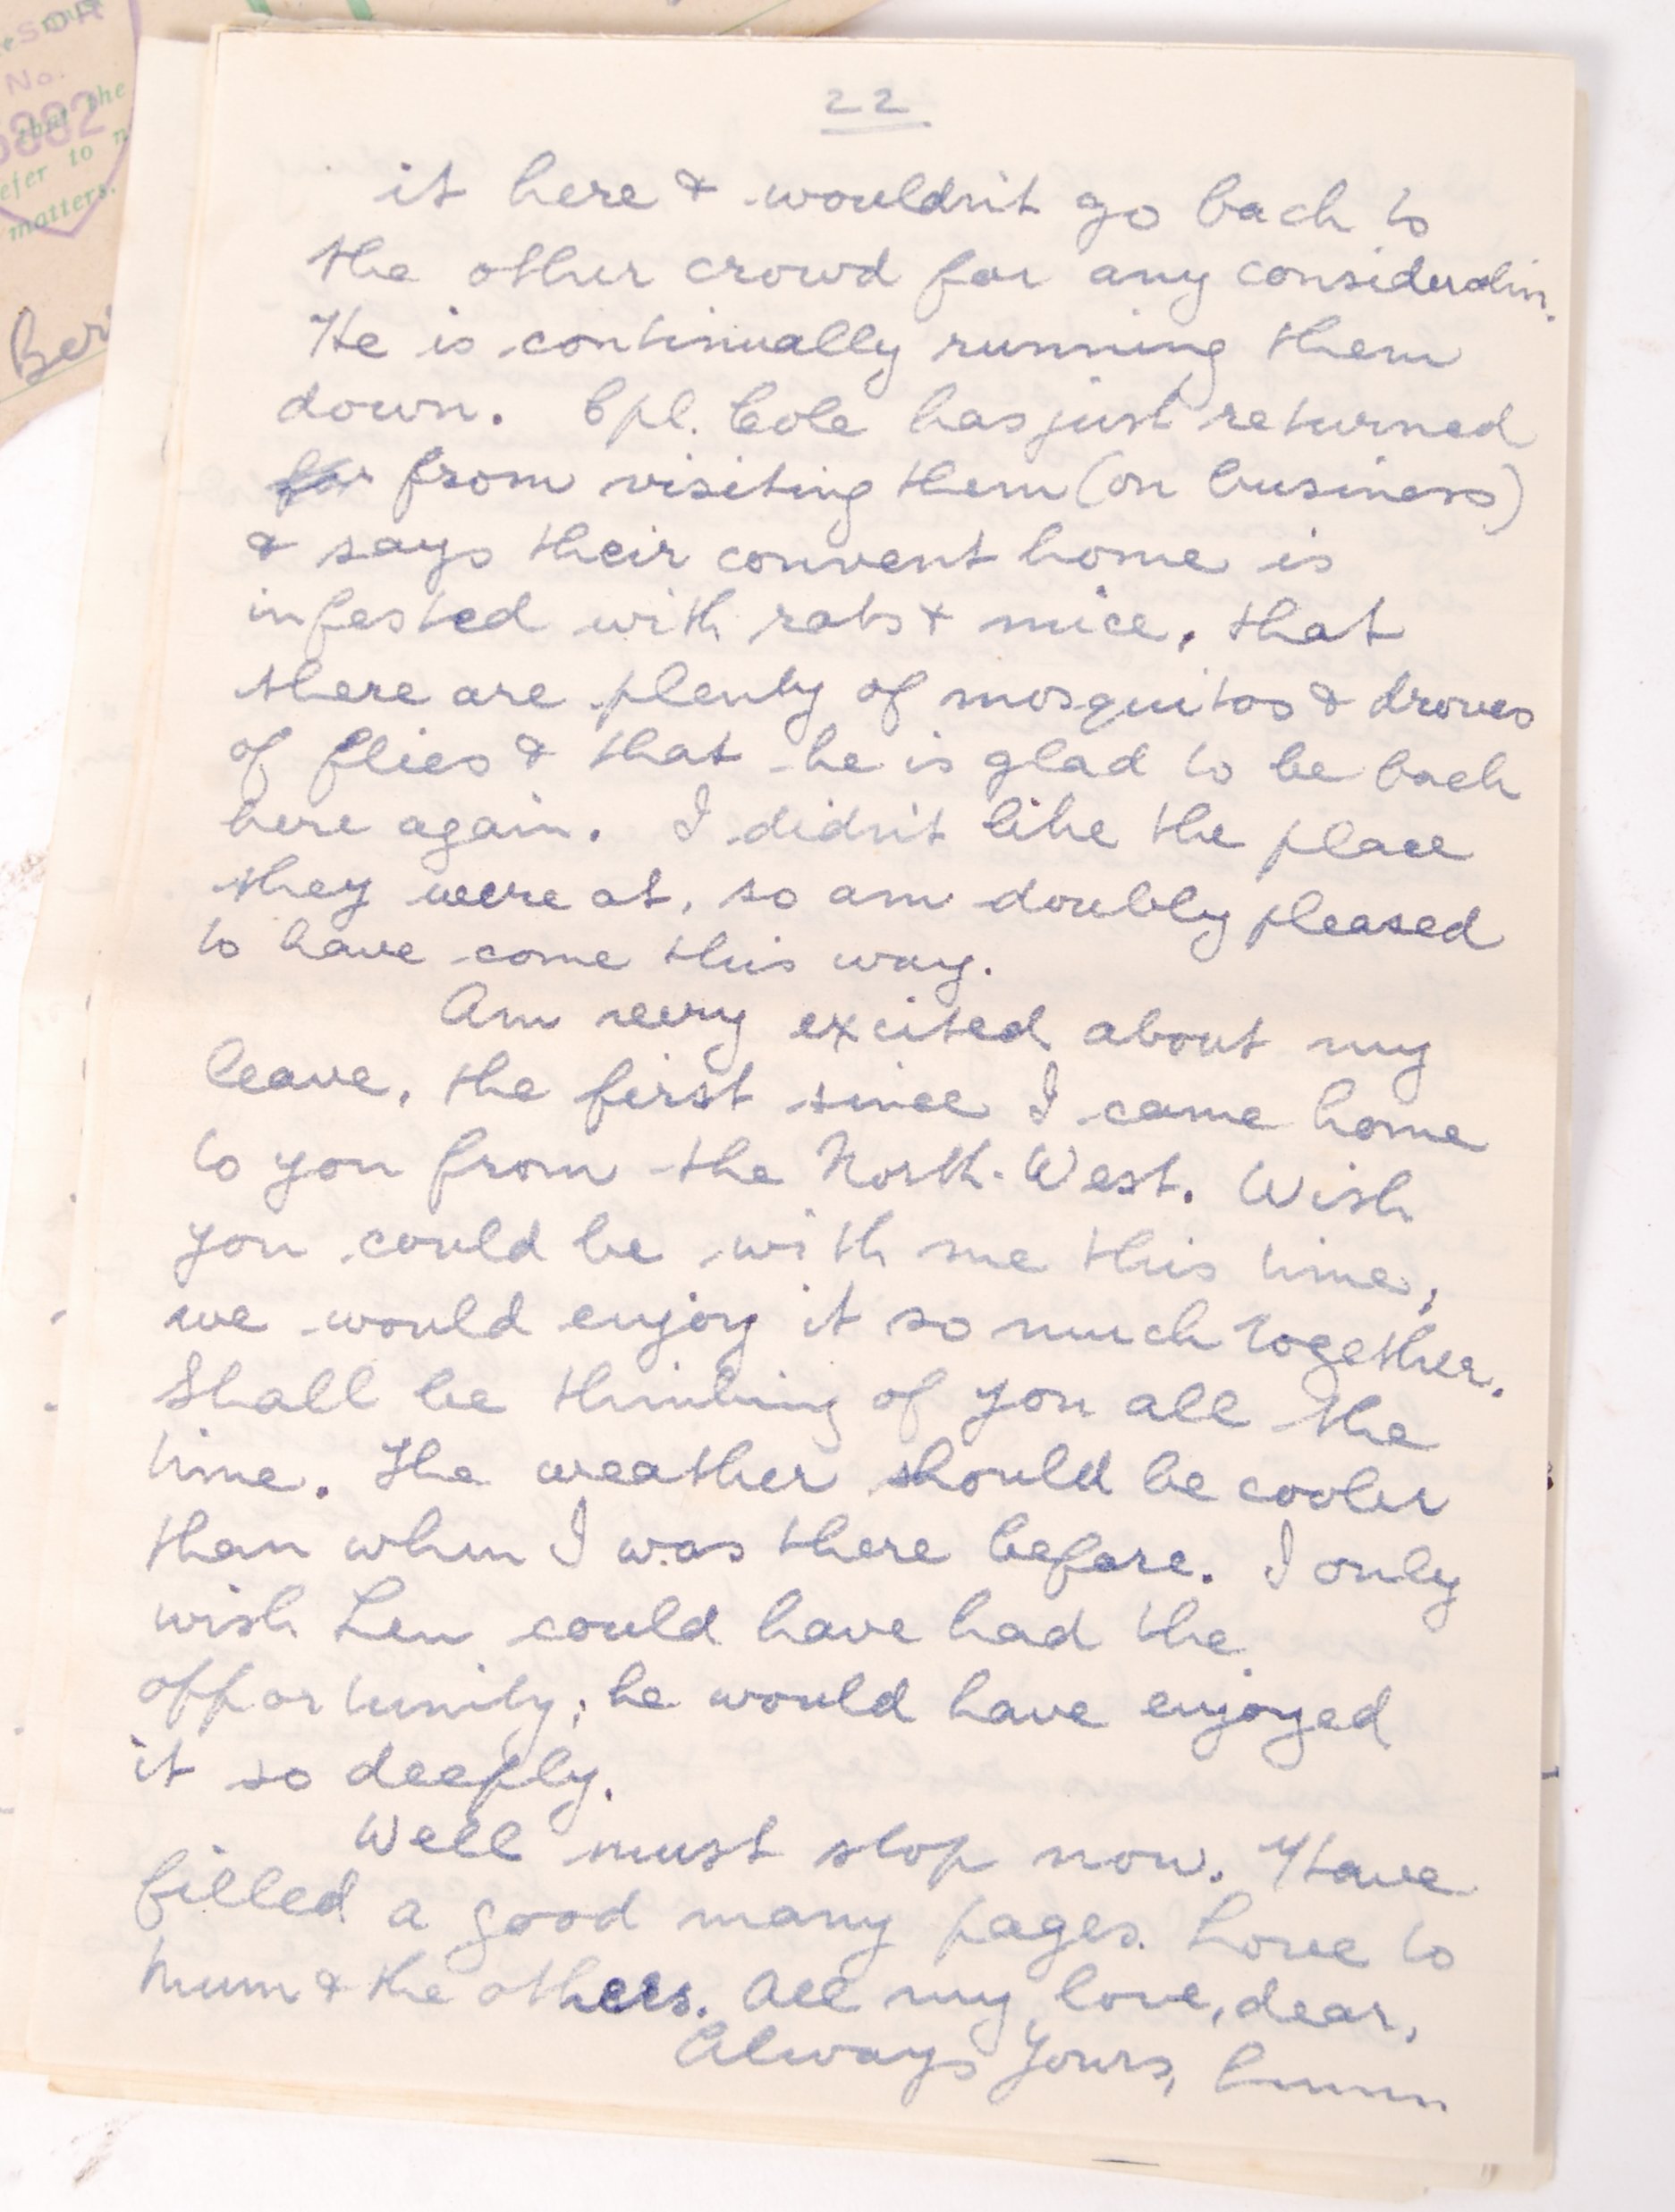 SOR
No.
that the
efer to n
matters.
Ber
22
it here & wouldn't go back to
the other crowd for any consideration.
He is continually running them
down. Cpl. Cole has just returned
from visiting them (on business)
& says their convent home is
infested with rats & mice, that
there are plenty of mosquitos & droves
of flies & that he is glad to be back
here again. I didn't like the place
they were at, so am doubly pleased
to have come this way.
Am very excited about my
leave, the first since I came home
to you from the North-West. Wish
you could be with me this time,
we would enjoy it so much together.
Shall be thinking of you all the
time. The weather should be cooler
than when I was there before. I only
wish Len could have had the
opportunity, he would have enjoyed
it so deeply.
Well must stop now. Have
filled a good many pages. Love to
Mum & the others. All my love, dear,
Always Yours,